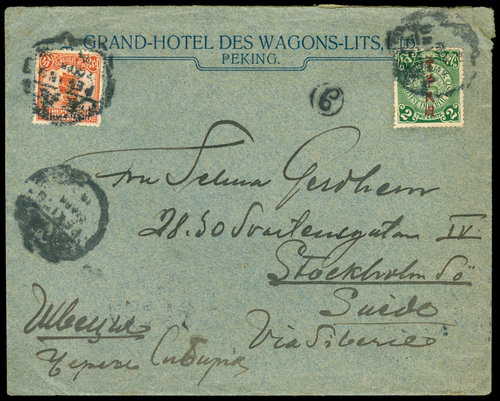 GRAND-HOTEL DES WAGONS-LITS, LTD.
PEKING.
9
Fru Selma Gerdhem
28.30 Svartensgatan IV
Stockholm Sö
Suède
Via Siberie
Швецiя
Через Сибирь